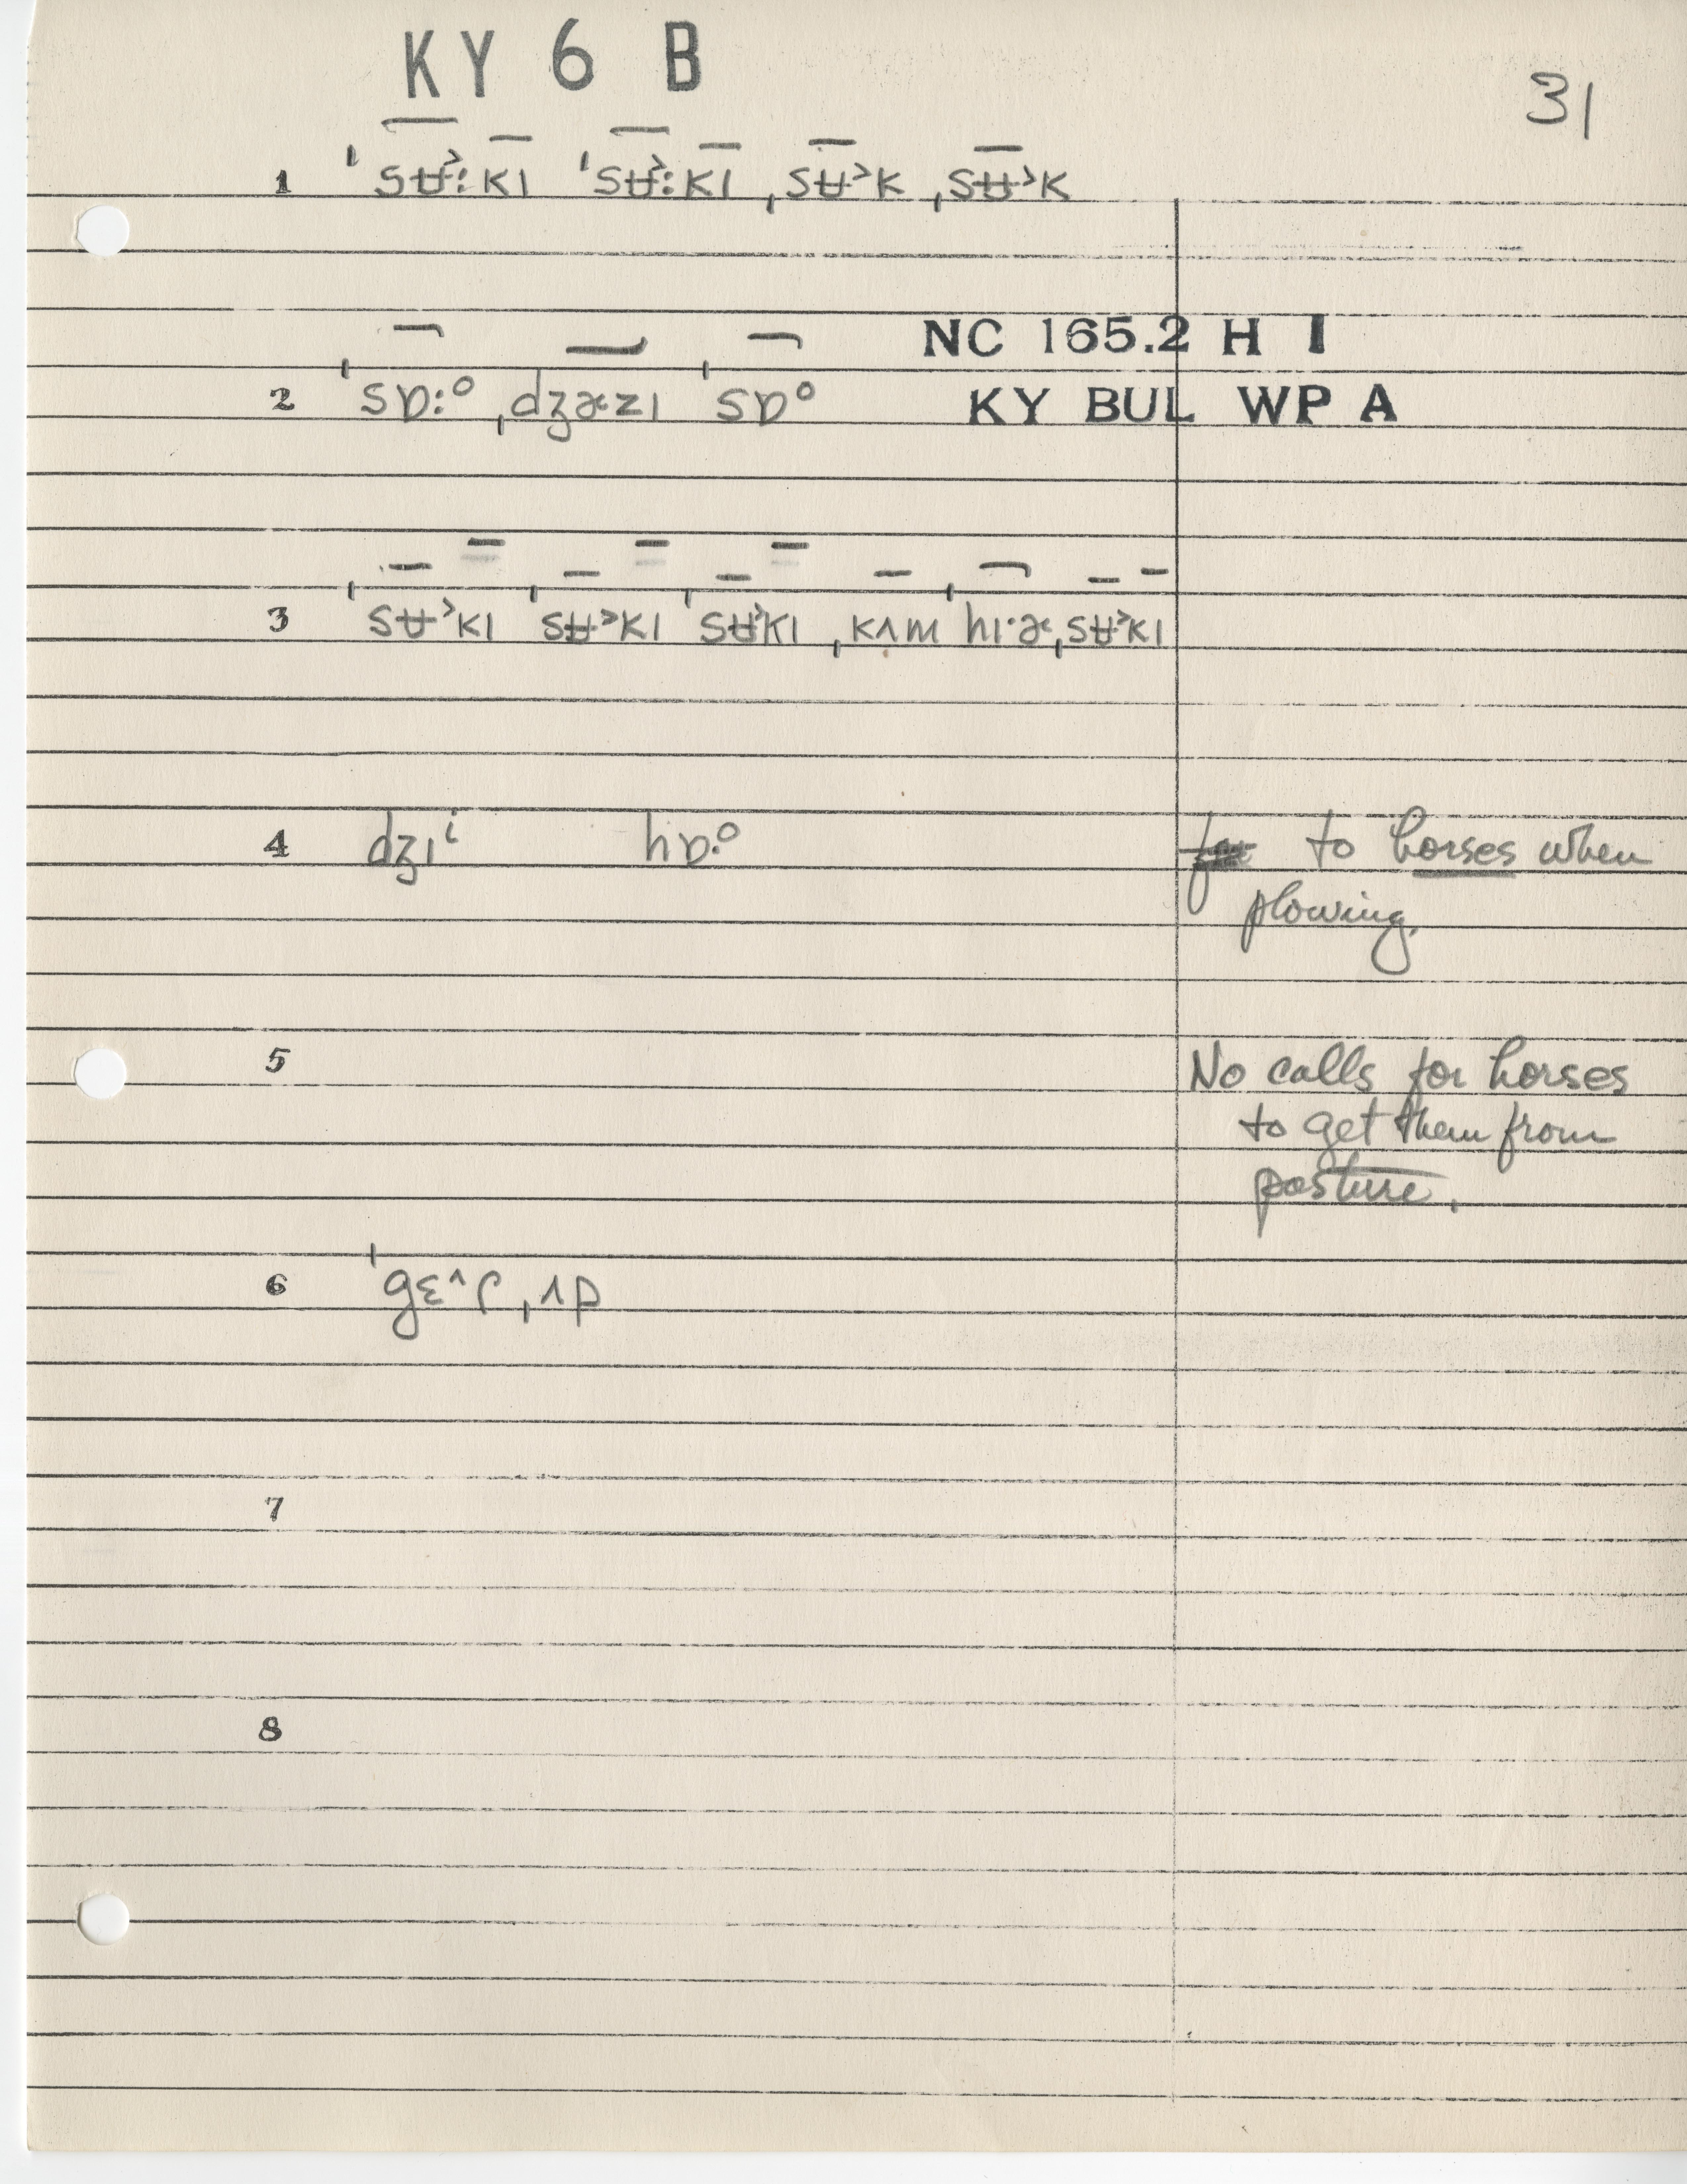 KY 6 B
31
1 ˈsʉ˃:kɪ ˈsʉ˃:kɪ ˌsʉ˃k ˌsʉ˃k
NC 165.2 H I
2 ˈsɒ:ᵒ ˌdʒæzɪ ˈsɒᵒ KY BUL WP A
3 ˈsʉ˃kɪ ˈsʉ˃kɪ ˈsʉ˃kɪ ˌkʌm ˈhɪ·ɚ ˌsʉ˃kɪ
4 dʒɪⁱ hɒ·ᵒ to horses when
plowing.
5 No calls for horses
to get them from
pasture.
6 ˈgɛ^ɾ ˌʌp
7
8